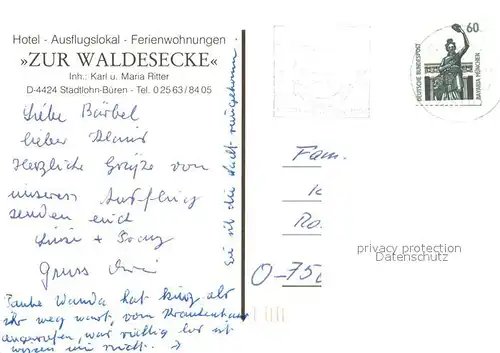 Hotel - Ausflugslokal - Ferienwohnungen
»ZUR WALDESECKE«
Inh.: Karl u. Maria Ritter
D-4424 Stadtlohn-Büren - Tel. 0 25 63 / 84 05
Liebe Bärbel
lieber
Herzliche Grüße von
unserem Ausflug
senden euch
+ Franz
Gruss
Tante Wanda hat kurz als
ihr weg wart, vom Krankenhaus
angerufen, was richtig los ist
wissen wir nicht.
Sie ist die Nacht
60
DEUTSCHE BUNDESPOST
BAVARIA MÜNCHEN
Fam.
Ro.
O-75
privacy protection
Datenschutz